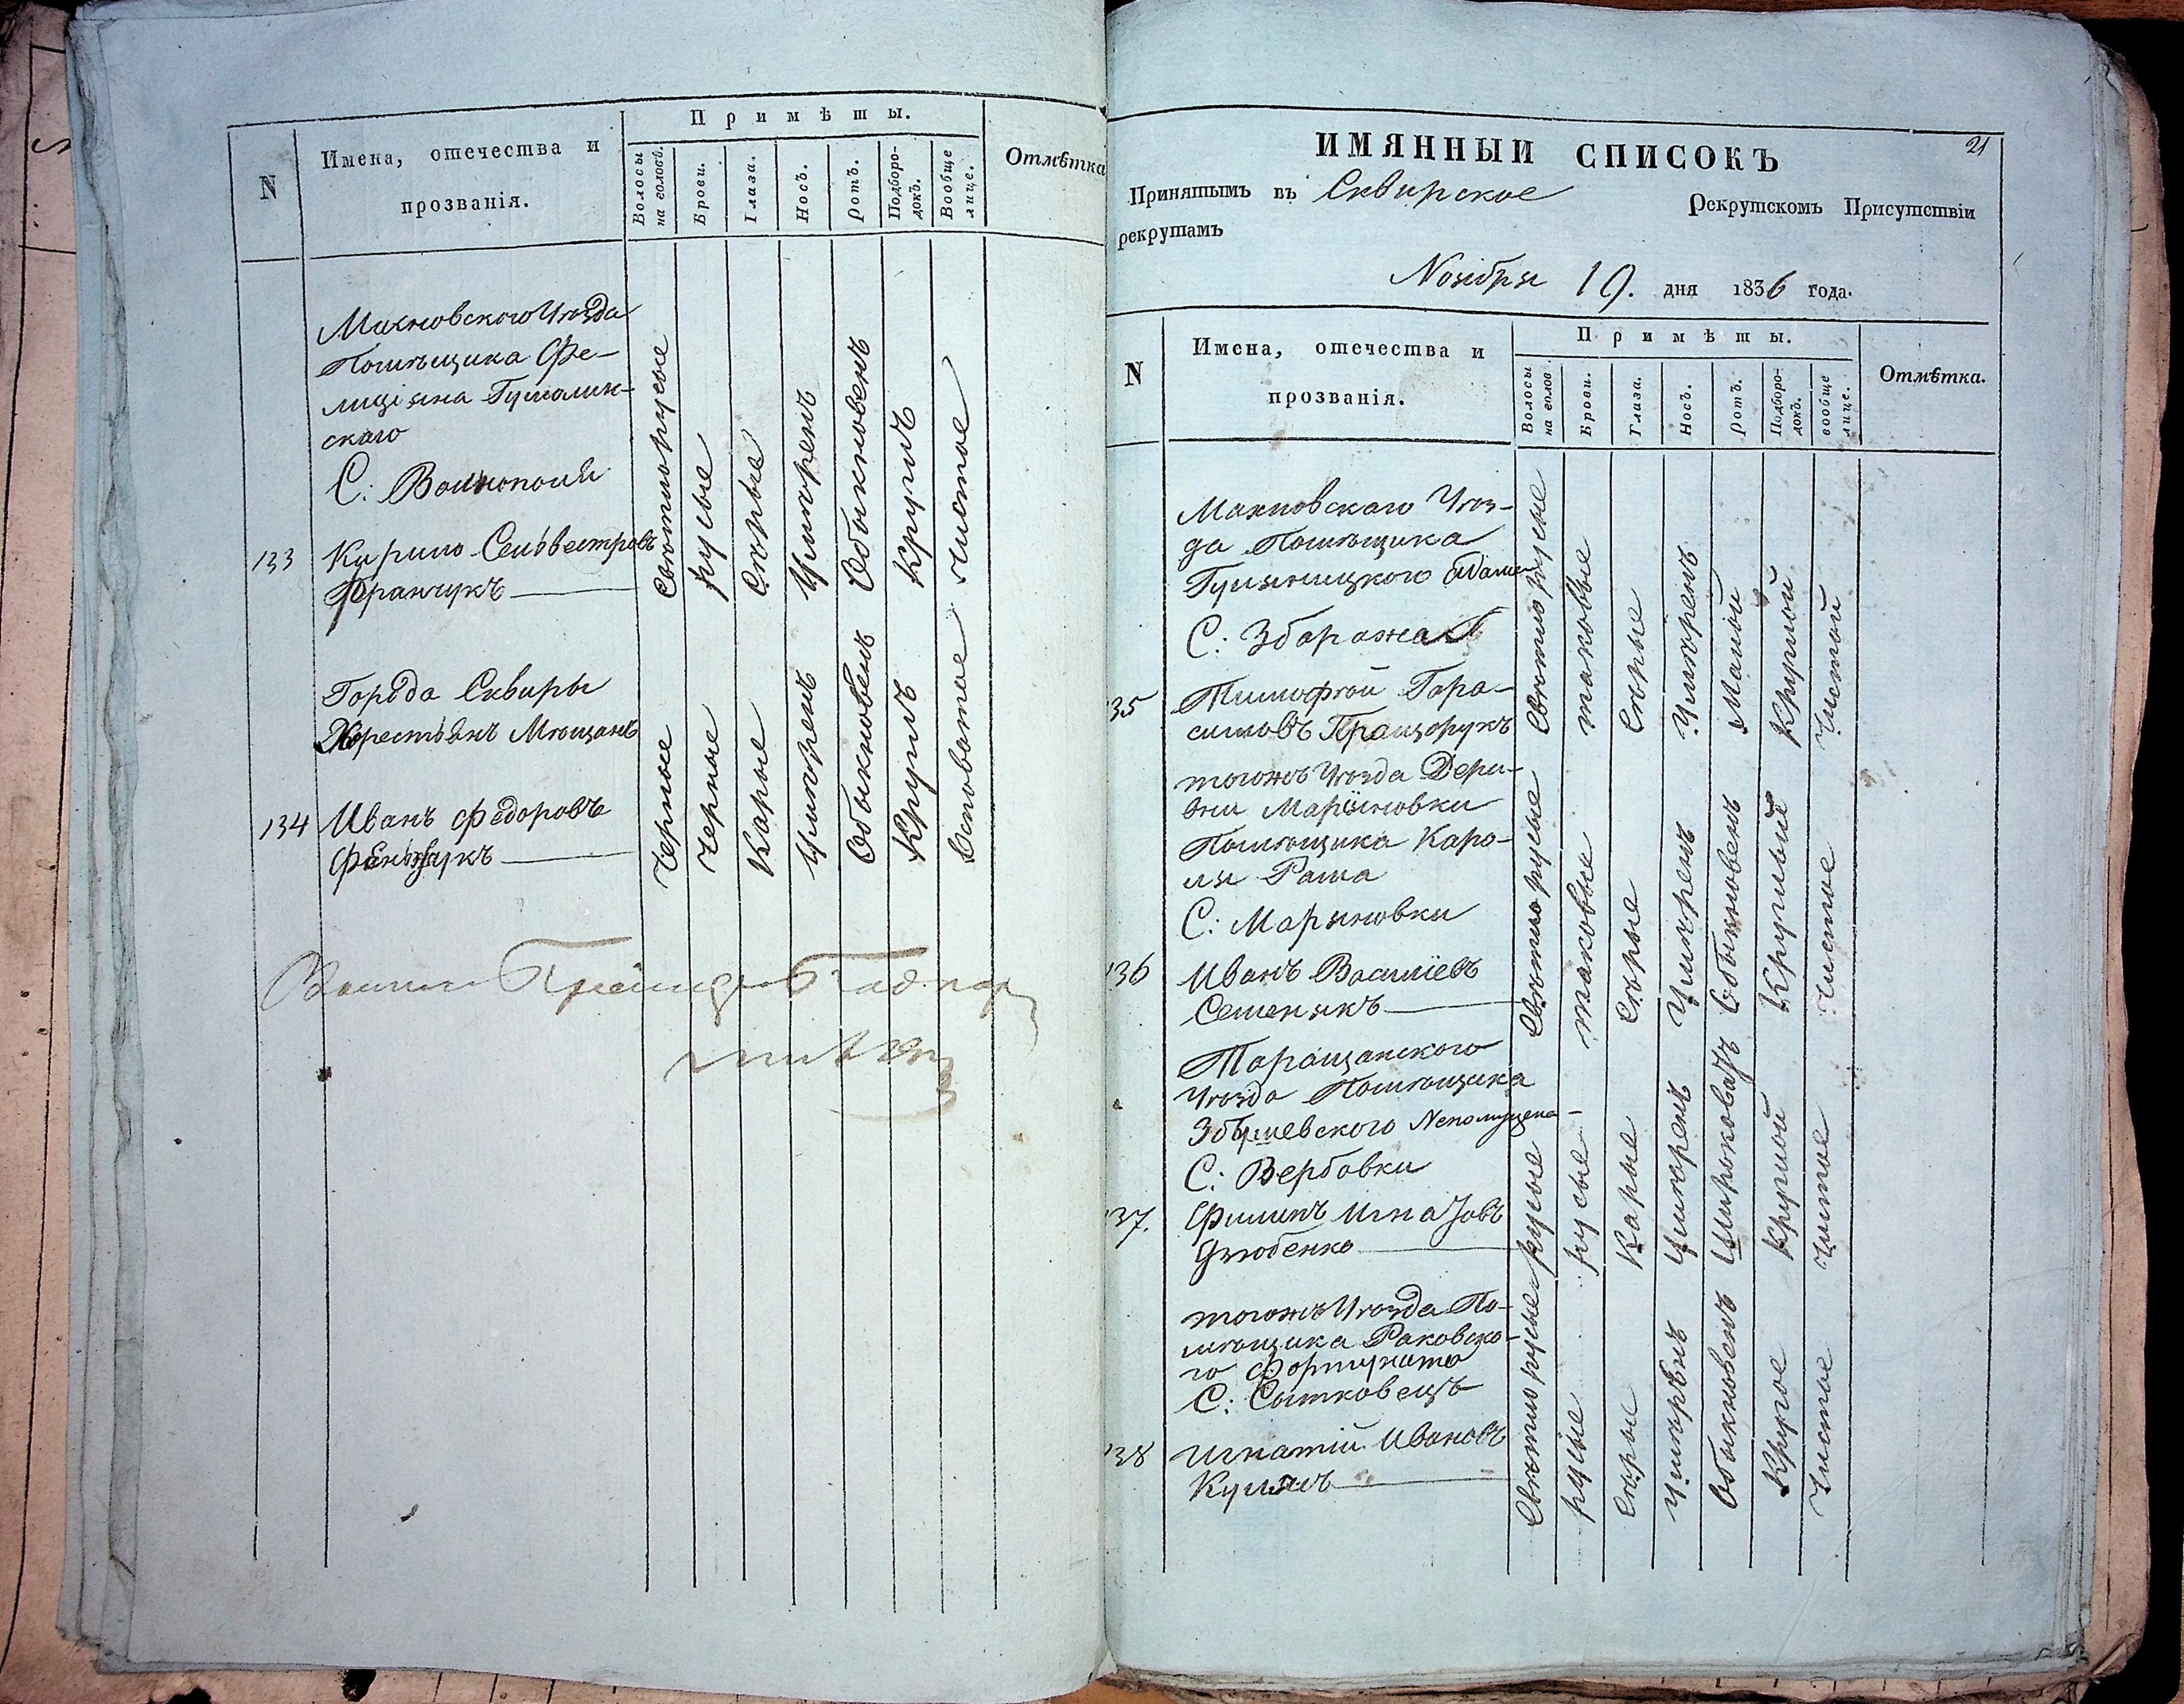 N
Имена, отечества и
прозванія.
Примѣты.
Волосы на головѣ.
Брови.
Глаза.
Носъ.
Ротъ.
Подборо-
докъ.
Вообще
лице.
Отмѣтка
Махновского Уѣзда
Помѣщика Фе-
лиціяна
скаго
С:
133 Кирило Сельвестровъ
Франчукъ
Светло русые
русые
Серые
Умѣренъ
Обыкновенъ
Круглъ
чистое
Города Сквиры
Хрестьянъ Мѣщанъ
134 Иванъ Федоровъ
Черные
черные
Карые
Умѣренъ
Обыкновенъ
Круглъ
Остоватое
21
ИМЯННЫЙ СПИСОКЪ
Принятымъ въ Сквирское Рекрутскомъ Присутствіи
рекрутамъ
Ноября 19. дня 1836 года.
N
Имена, отечества и
прозванія.
Примѣты.
Волосы
на голов
Брови.
Глаза.
Носъ.
Ротъ.
Подборо-
докъ.
вообще
лице.
Отмѣтка.
Махновскаго Уѣз-
да Помѣщика
С: Збаража
35 Тимофѣй Гара-
симовъ
Светло русые
таковые
Серые
Умѣренъ
Малой
Круглой
Чистой
тогожъ Уѣзда Дере-
вни Марьяновки
Помѣщика Каро-
ля Раша
С: Марьяновки
136 Иванъ Василіевъ
Семенякъ
Светло русые
таковые
Серые
Умѣренъ
Обыкновенъ
Чистое
Таращанского
Уѣзда Помѣщика
Збышевского
С: Вербовки
137. Филипъ Игнатовъ
Дзюбенко
русые
русые
Карые
Умѣренъ
Широковатъ
Круглой
Чистое
тогожъ Уѣзда По-
мѣщика Раковско-
го Фортуната
С: Ситковецъ
138 Игнатій Ивановъ
Светло русые
русые
Серые
Умѣренъ
Обыкновенъ
Круглое
Чистое